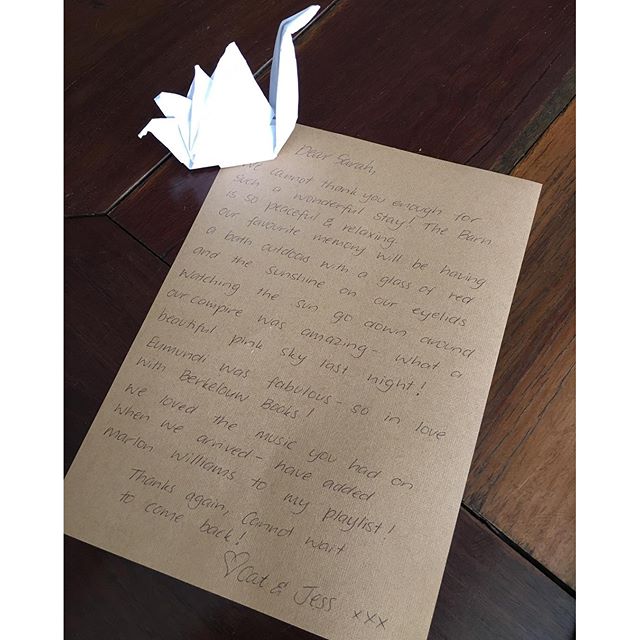 Dear Sarah,
We cannot thank you enough for
such a wonderful stay! The Barn
is so peaceful & relaxing.
Our favourite memory will be having
a bath outdoors with a glass of red
and the sunshine on our eyelids
Watching the sun go down around
our campire was amazing - what a
beautiful pink sky last night!
Eumundi was fabulous - so in love
with Berkelouw Books!
We loved the music you had on
when we arrived - have added
Marlon Williams to my playlist!
Thanks again, cannot wait
to come back!
♡ Cat & Jess xxx